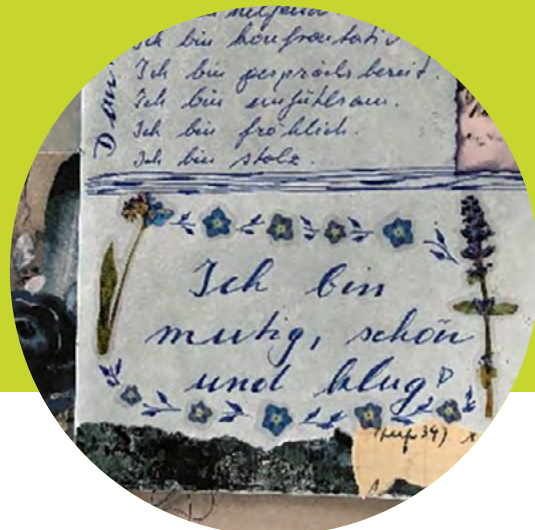 Ich bin konfrontativ
Ich bin gesprächsbereit.
Ich bin einfühlsam.
Ich bin fröhlich.
Ich bin stolz.
Ich bin
mutig, schön
und klug